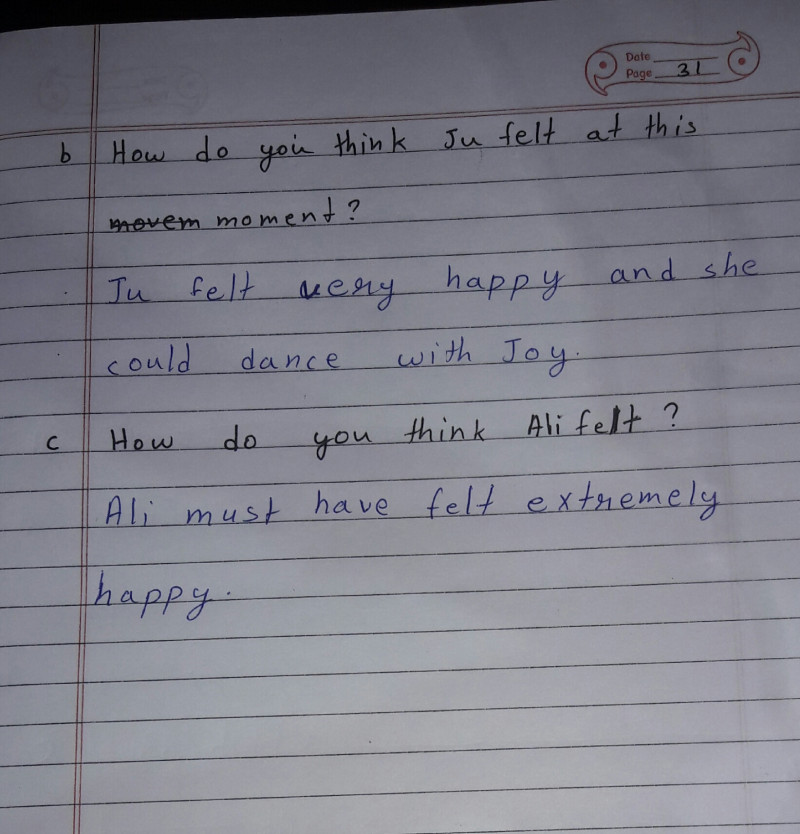 Date
Page 31
b How do you think Ju felt at this
movem moment?
Ju felt very happy and she
could dance with Joy.
c How do you think Ali felt?
Ali must have felt extremely
happy.